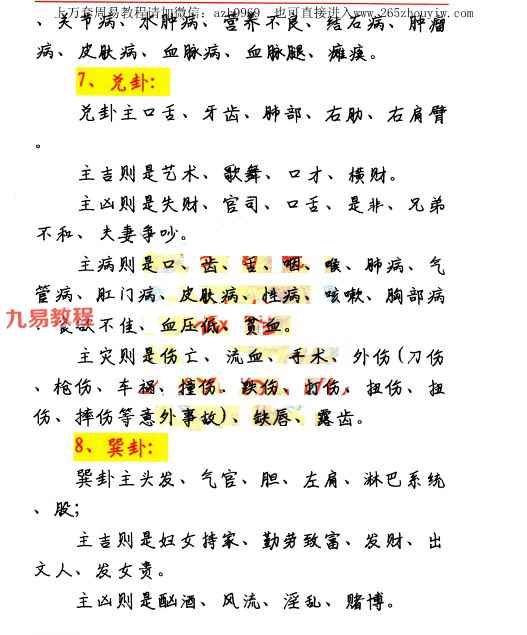 上万套周易教程请加微信：azh0989 也可直接进入www.265zhouyiw.com
、关节病、水肿病、营养不良、结石病、肿瘤
病、皮肤病、血脉病、血脉腿、瘫痪。
7、兑卦：
兑卦主口舌、牙齿、肺部、右肋、右肩臂
。
主吉则是艺术、歌舞、口才、横财。
主凶则是失财、官司、口舌、是非、兄弟
不和、夫妻争吵。
主病则是口、齿、舌、咽、喉、肺病、气
管病、肛门病、皮肤病、性病、咳嗽、胸部病
九易教程
、食欲不佳、血压低、贫血。
主灾则是伤亡、流血、手术、外伤(刀伤
、枪伤、车祸、撞伤、跌伤、打伤、扭伤、扭
伤、摔伤等意外事故)、缺唇、露齿。
8、巽卦：
巽卦主头发、气官、胆、左肩、淋巴系统
、股；
主吉则是妇女持家、勤劳致富、发财、出
文人、发女贵。
主凶则是酗酒、风流、淫乱、赌博。